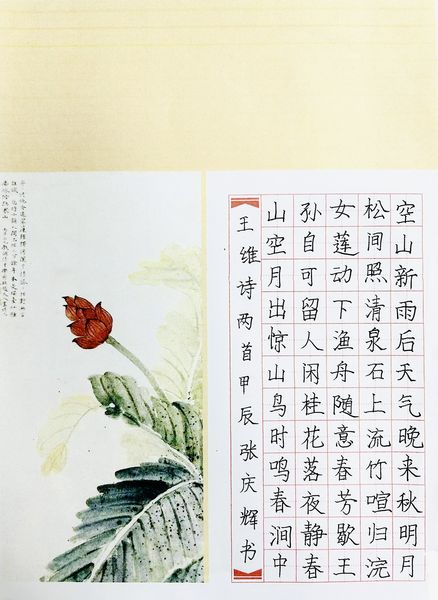 空山新雨后天气晚来秋明月
松间照清泉石上流竹喧归浣
女莲动下渔舟随意春芳歇王
孙自可留人闲桂花落夜静春
山空月出惊山鸟时鸣春涧中
王维诗两首甲辰张庆辉书